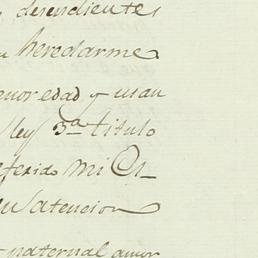 descendientes
heredarme
enor edad y usan
ley 3a titulo
eferido mi
su atencion
paternal amor